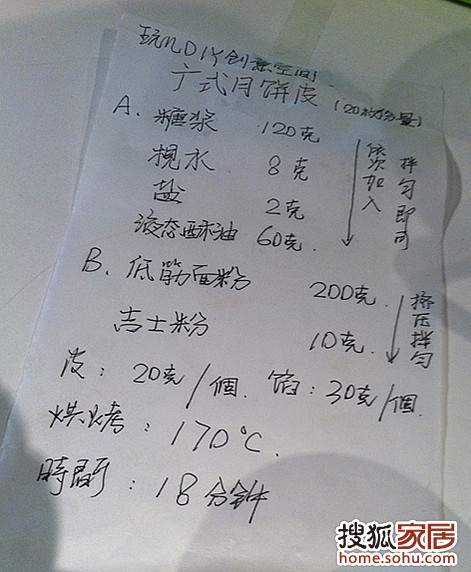 玩几DIY创意空间
广式月饼皮 (20枚份量)
A. 糖浆 120克
枧水 8克
盐 2克
液态酥油 60克
依次加入
拌匀即可
B. 低筋面粉 200克
吉士粉 10克
挤压拌匀
皮: 20克/個. 馅: 30克/個.
烘烤: 170℃.
時間: 18分鈡
搜狐家居
home.sohu.com